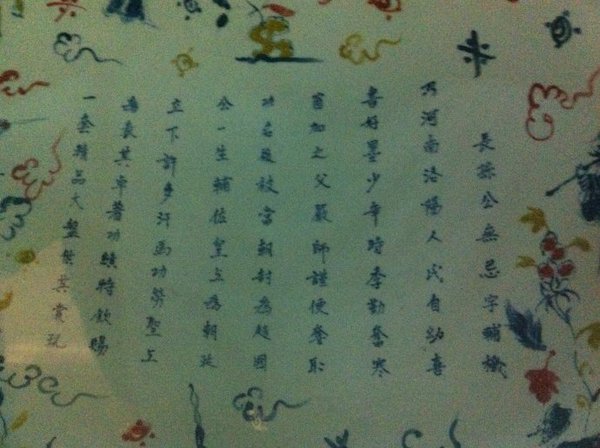 長孫公無忌字輔機
乃河南洛陽人氏自幼喜
書好墨少年時勤奮寒
窗加之父嚴師謹便奪取
功名後被當朝封為趙國
公一生輔佐皇上為朝廷
立下許多汗馬功勞聖上
為表其卓著功績特欽賜
一套精品大盤供其賞玩